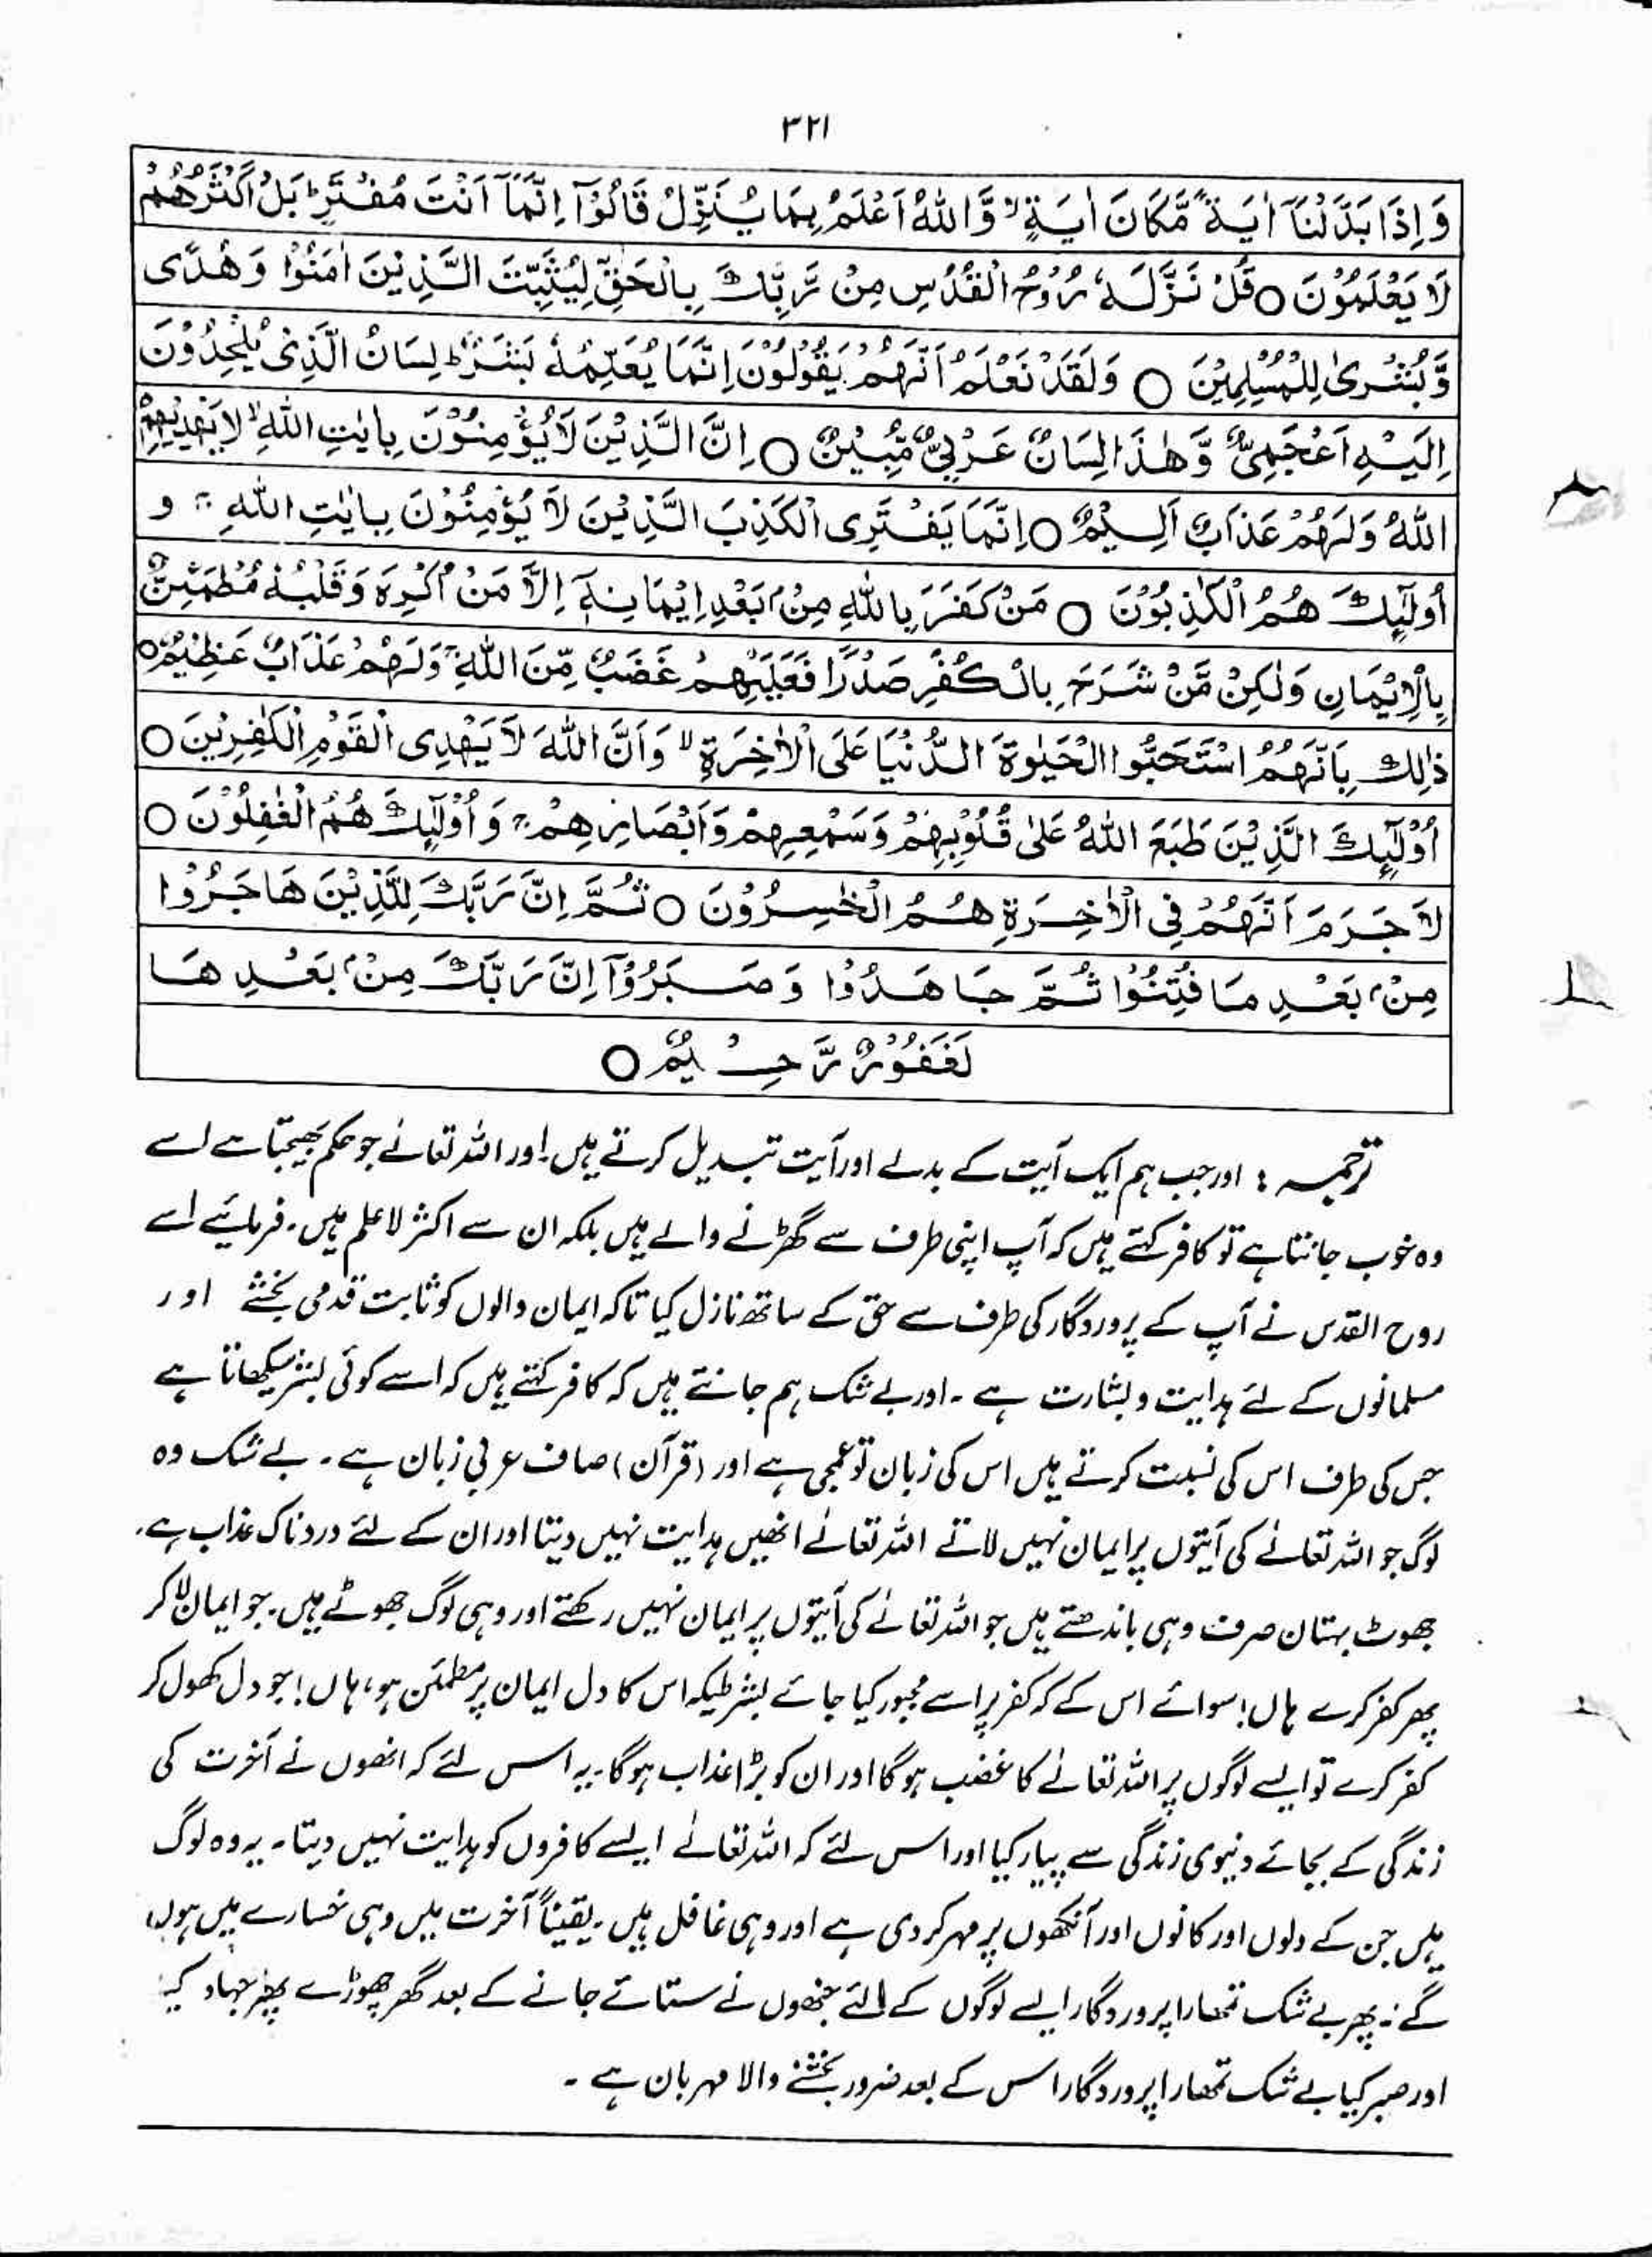 ۳۲۱
وَاِذَا بَدَّلْنَاۤ اٰيَةً مَّكَانَ اٰيَةٍ ۙ وَّاللّٰهُ اَعْلَمُ بِمَا يُنَزِّلُ قَالُوْۤا اِنَّمَاۤ اَنْتَ مُفْتَرٍ ؕ بَلْ اَكْثَرُهُمْ
لَا يَعْلَمُوْنَ ○ قُلْ نَزَّلَهٗ رُوْحُ الْقُدُسِ مِنْ رَّبِّكَ بِالْحَقِّ لِيُثَبِّتَ الَّذِيْنَ اٰمَنُوْا وَهُدًى
وَّبُشْرٰى لِلْمُسْلِمِيْنَ ○ وَلَقَدْ نَعْلَمُ اَنَّهُمْ يَقُوْلُوْنَ اِنَّمَا يُعَلِّمُهٗ بَشَرٌ ؕ لِسَانُ الَّذِىْ يُلْحِدُوْنَ
اِلَيْهِ اَعْجَمِىٌّ وَّهٰذَا لِسَانٌ عَرَبِىٌّ مُّبِيْنٌ ○ اِنَّ الَّذِيْنَ لَا يُؤْمِنُوْنَ بِاٰيٰتِ اللّٰهِ ۙ لَا يَهْدِيْهِمُ
اللّٰهُ وَلَهُمْ عَذَابٌ اَلِيْمٌ ○ اِنَّمَا يَفْتَرِى الْكَذِبَ الَّذِيْنَ لَا يُؤْمِنُوْنَ بِاٰيٰتِ اللّٰهِ ۚ و
اُولٰٓئِكَ هُمُ الْكٰذِبُوْنَ ○ مَنْ كَفَرَ بِاللّٰهِ مِنْۢ بَعْدِ اِيْمَانِهٖۤ اِلَّا مَنْ اُكْرِهَ وَقَلْبُهٗ مُطْمَئِنٌّۢ
بِالْاِيْمَانِ وَلٰكِنْ مَّنْ شَرَحَ بِالْكُفْرِ صَدْرًا فَعَلَيْهِمْ غَضَبٌ مِّنَ اللّٰهِ ۚ وَلَهُمْ عَذَابٌ عَظِيْمٌ ○
ذٰلِكَ بِاَنَّهُمُ اسْتَحَبُّوا الْحَيٰوةَ الدُّنْيَا عَلَى الْاٰخِرَةِ ۙ وَاَنَّ اللّٰهَ لَا يَهْدِى الْقَوْمَ الْكٰفِرِيْنَ ○
اُوْلٰٓئِكَ الَّذِيْنَ طَبَعَ اللّٰهُ عَلٰى قُلُوْبِهِمْ وَسَمْعِهِمْ وَاَبْصَارِهِمْ ۚ وَاُوْلٰٓئِكَ هُمُ الْغٰفِلُوْنَ ○
لَا جَرَمَ اَنَّهُمْ فِى الْاٰخِرَةِ هُمُ الْخٰسِرُوْنَ ○ ثُمَّ اِنَّ رَبَّكَ لِلَّذِيْنَ هَاجَرُوْا
مِنْۢ بَعْدِ مَا فُتِنُوْا ثُمَّ جَاهَدُوْا وَصَبَرُوْۤا اِنَّ رَبَّكَ مِنْۢ بَعْدِهَا
لَغَفُوْرٌ رَّحِيْمٌ ○
ترجمہ : اور جب ہم ایک آیت کے بدلے اور آیت تبدیل کرتے ہیں۔ اور اللہ تعالےٰ جو حکم بھیجتا ہے اسے
وہ خوب جانتا ہے تو کافر کہتے ہیں کہ آپ اپنی طرف سے گھڑنے والے ہیں بلکہ ان سے اکثر لاعلم ہیں۔ فرمایئے اسے
روح القدس نے آپ کے پروردگار کی طرف سے حق کے ساتھ نازل کیا تاکہ ایمان والوں کو ثابت قدمی بخشے اور
مسلمانوں کے لئے ہدایت و بشارت ہے ۔ اور بے شک ہم جانتے ہیں کہ کافر کہتے ہیں کہ اسے کوئی بشر سکھاتا ہے
جس کی طرف اس کی نسبت کرتے ہیں اس کی زبان تو عجمی ہے اور (قرآن) صاف عربی زبان ہے۔ بے شک وہ
لوگ جو اللہ تعالےٰ کی آیتوں پر ایمان نہیں لاتے اللہ تعالےٰ انھیں ہدایت نہیں دیتا اور ان کے لئے دردناک عذاب ہے۔
جھوٹ بہتان صرف وہی باندھتے ہیں جو اللہ تعالےٰ کی آیتوں پر ایمان نہیں رکھتے اور وہی لوگ جھوٹے ہیں۔ جو ایمان لاکر
پھر کفر کرے ہاں! سوائے اس کے کہ کفر پر اسے مجبور کیا جائے بشرطیکہ اس کا دل ایمان پر مطمئن ہو، ہاں! جو دل کھول کر
کفر کرے تو ایسے لوگوں پر اللہ تعالےٰ کا غضب ہوگا اور ان کو بڑا عذاب ہوگا۔ یہ اس لئے کہ انھوں نے آخرت کی
زندگی کے بجائے دنیوی زندگی سے پیار کیا اور اس لئے کہ اللہ تعالےٰ ایسے کافروں کو ہدایت نہیں دیتا۔ یہ وہ لوگ
ہیں جن کے دلوں اور کانوں اور آنکھوں پر مہر کردی ہے اور وہی غافل ہیں۔ یقیناً آخرت میں وہی خسارے میں ہوں
گے ۔ پھر بے شک تمھارا پروردگار ایسے لوگوں کے لئے جنھوں نے ستائے جانے کے بعد گھر چھوڑے پھر جہاد
اور صبر کیا بے شک تمھارا پروردگار اس کے بعد ضرور بخشنے والا مہربان ہے ۔